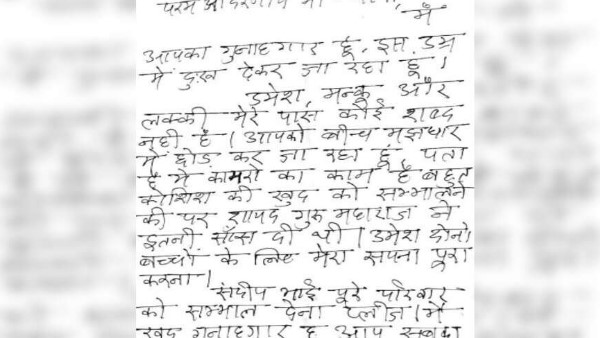 परम आदरणीय
मैं
आपका गुनाहगार हूं, इस उम्र
में दुःख देकर जा रहा हूं।
उमेश, मन्कू और
लक्की मेरे पास कोई शब्द
नहीं है। आपको बीच मझधार
में छोड कर जा रहा हूं, पता
है ये कायरो का काम है बहुत
कोशिश की खुद को सम्भालने
की पर शायद गुरु महाराज ने
इतनी साँस दी थी। उमेश दोनो
बच्चो के लिए मेरा सपना पूरा
करना।
संदीप भाई पूरे परिवार
को सम्भाल देना प्लीज। मैं
खुद गुनाहगार हूं आप सबका